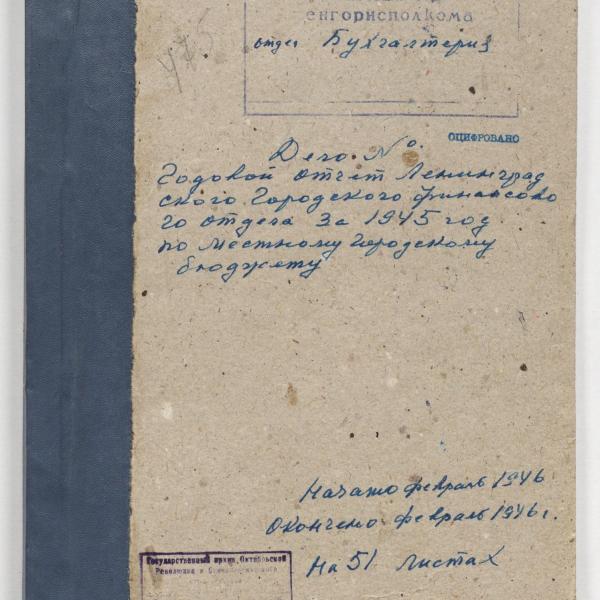 475
енгорисполкома
отдел Бухгалтерия
ОЦИФРОВАНО
Дело №.
Годовой отчет Ленинград
ского Городского финансово
го отдела за 1945 год
по местному Городскому
бюджету
Начато февраль 1946
Окончено февраль 1946 г.
На 51 листах
Государственный архив Октябрьской
Революции и